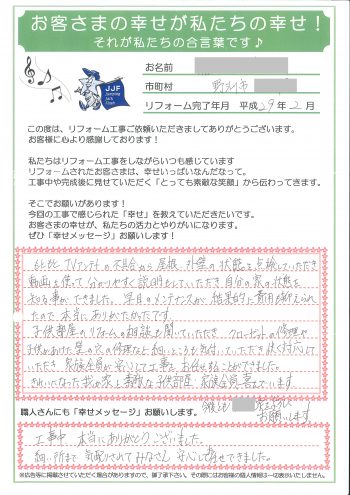 お客さまの幸せが私たちの幸せ！
それが私たちの合言葉です♪
JJF
お名前
市町村 野洲市
リフォーム完了年月 平成29年2月
この度は、リフォーム工事ご依頼いただきましてありがとうございます。
お客様に心より感謝しております！
私たちはリフォーム工事をしながらいつも感じています
リフォームされたお客さまは、幸せいっぱいなんだなって。
工事中や完成後に見せていただく「とっても素敵な笑顔」から伝わってきます。
そこでお願いがあります！
今回の工事で感じられた「幸せ」を教えていただきたいです。
お客さまの幸せが、私たちの活力とやりがいになります。
ぜひ「幸せメッセージ」お願いします！
もともとTVアンテナの不具合から屋根、外壁の状態を点検していただき
動画を使って分かりやすく説明をしていただき自分の家の状態を
知る事ができました。早目のメンテナンスが結果的に費用も抑えられ
たので本当にありがたかったです。
子供部屋のリフォームの相談も聞いていただき、クローゼットの修理や
子供があけた壁の穴の修復など細いところも気付いていただき良く対応して
いただき家族全員が安心して工事をお任せすることができました。
きれいになった我が家と素敵な子供部屋、家族全員喜んでいます。
職人さんにも「幸せメッセージ」お願いします。
今後とも
お願いします
工事中、本当にありがとうございました。
細い所まで気配りされてみなさん安心して任せできました。
※広告等に掲載させていただく場合がありますので、御了承下さい。その際にはお客様の個人情報は一切表示いたしません。